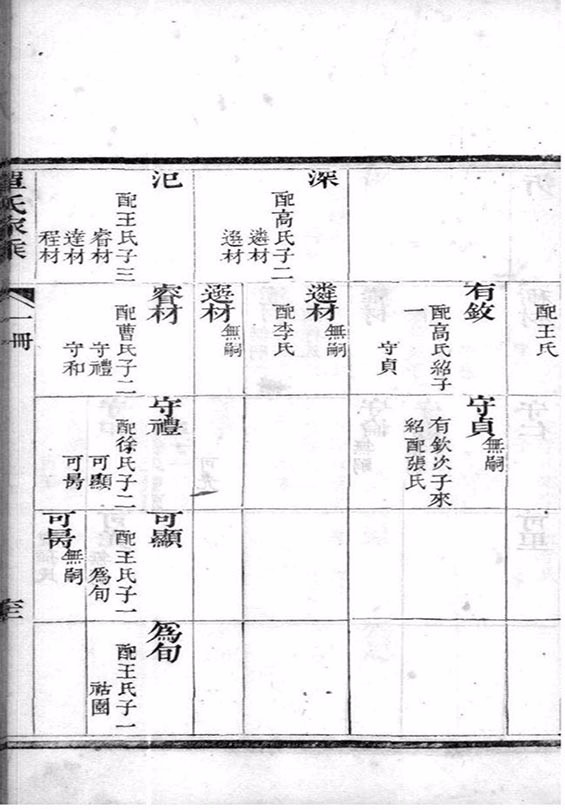 配王氏
深
配高氏子二
遴材
選材
氾
配王氏子三
睿材
達材
程材
配高氏紹子
一
守貞
遴材 無嗣
配李氏
選材 無嗣
睿材
配曹氏子二
守禮
守和
守貞 無嗣
有欽次子來
紹配張氏
守禮
配徐氏子二
可顯
可昺
可顯
配王氏子一
為旬
可昺 無嗣
為旬
配王氏子一
氏家乘
一冊